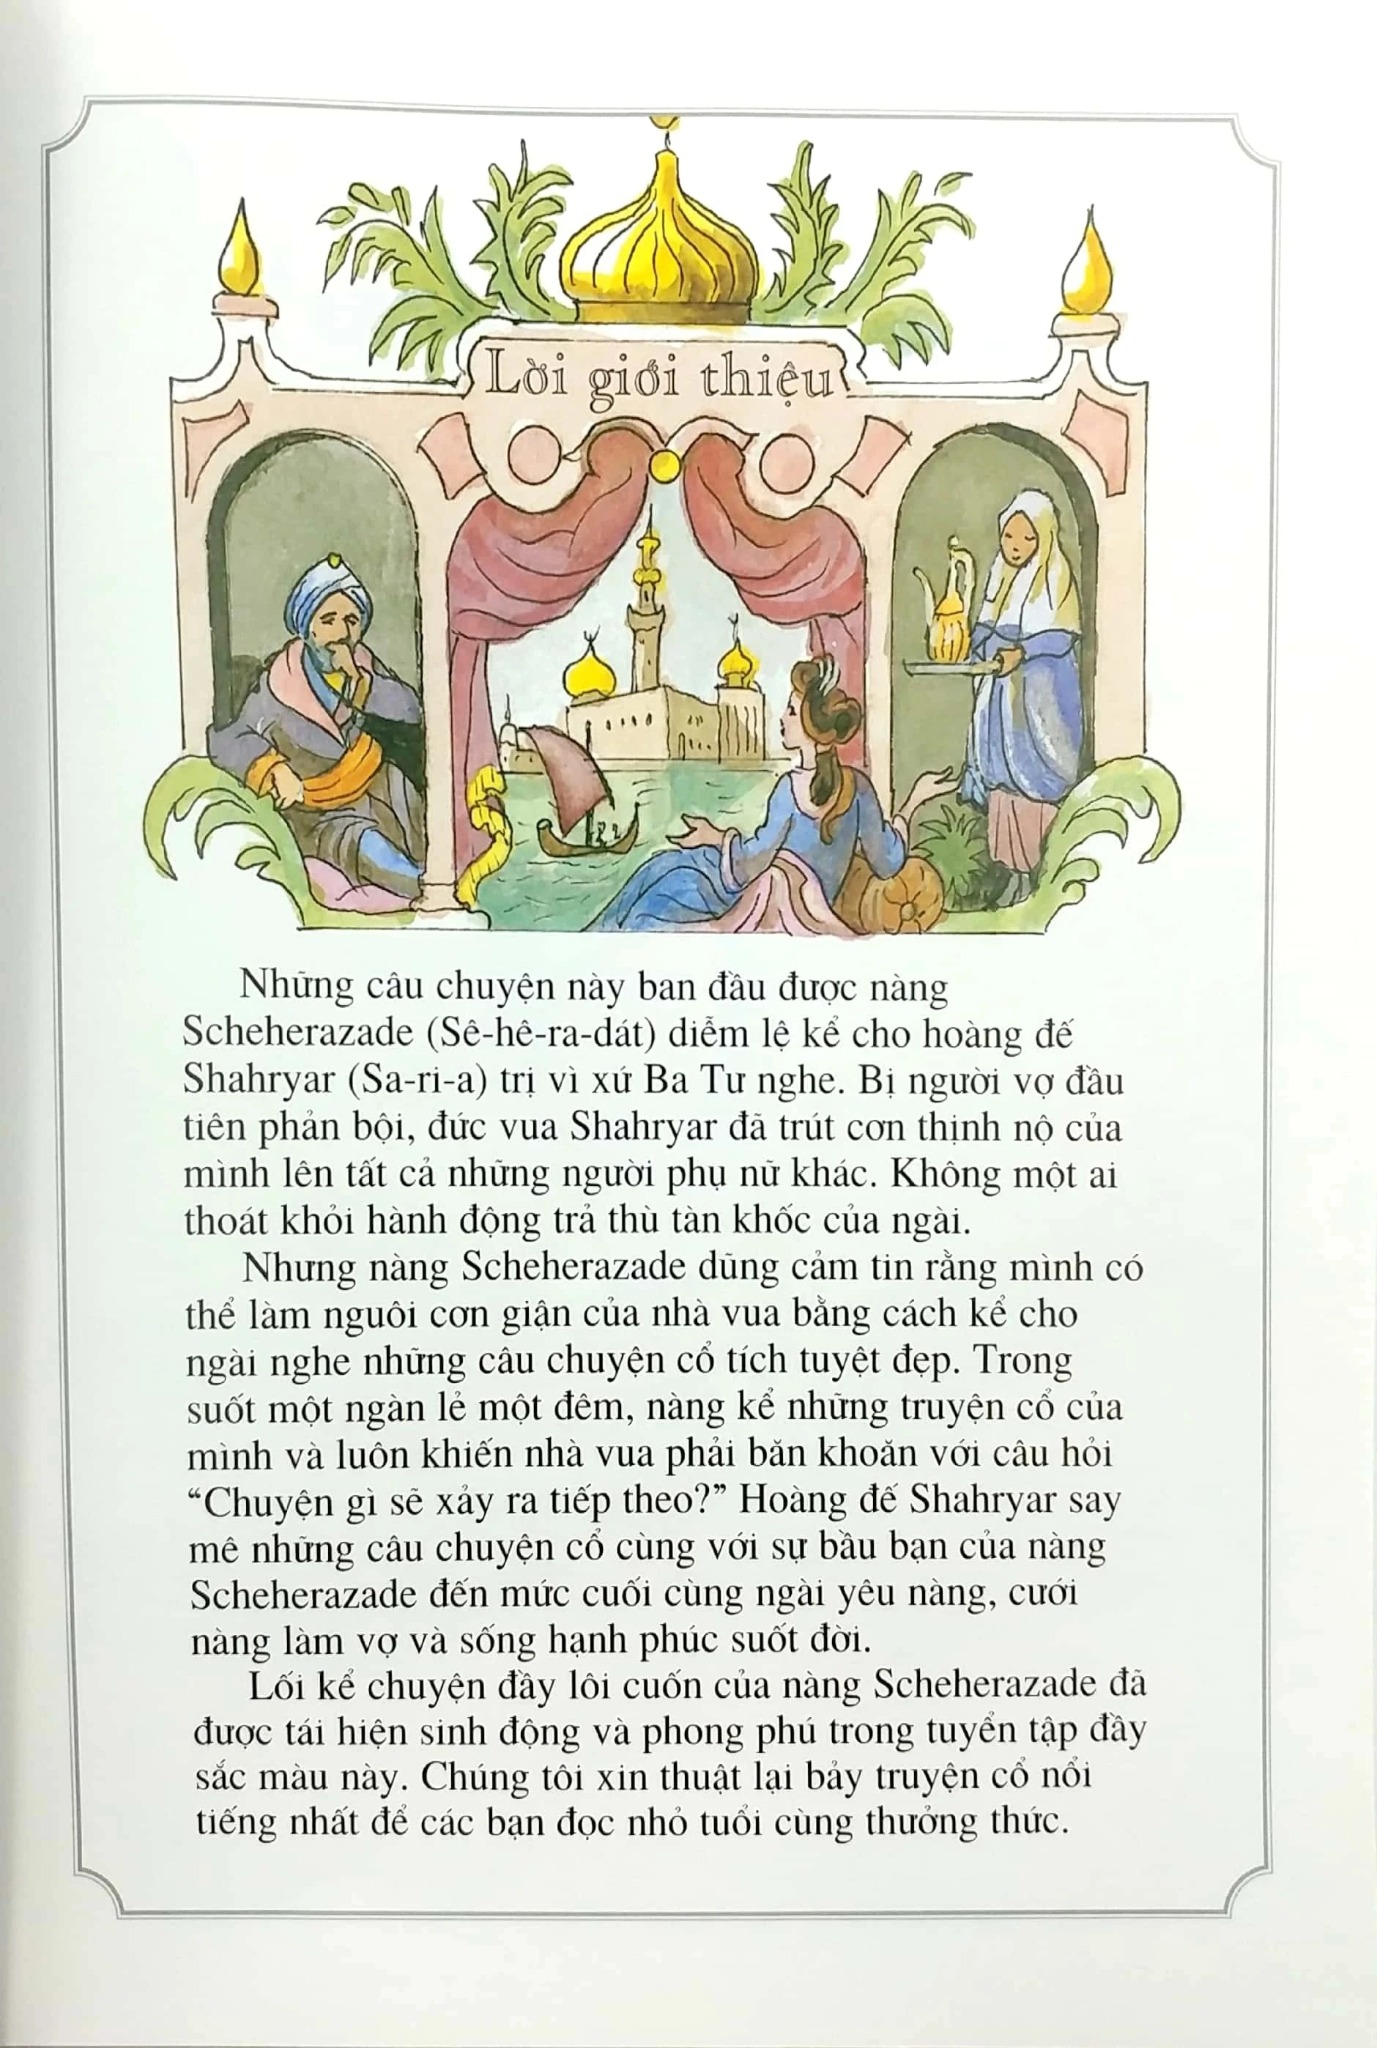 Lời giới thiệu
Những câu chuyện này ban đầu được nàng
Scheherazade (Sê-hê-ra-dát) diễm lệ kể cho hoàng đế
Shahryar (Sa-ri-a) trị vì xứ Ba Tư nghe. Bị người vợ đầu
tiên phản bội, đức vua Shahryar đã trút cơn thịnh nộ của
mình lên tất cả những người phụ nữ khác. Không một ai
thoát khỏi hành động trả thù tàn khốc của ngài.
Nhưng nàng Scheherazade dũng cảm tin rằng mình có
thể làm nguôi cơn giận của nhà vua bằng cách kể cho
ngài nghe những câu chuyện cổ tích tuyệt đẹp. Trong
suốt một ngàn lẻ một đêm, nàng kể những truyện cổ của
mình và luôn khiến nhà vua phải băn khoăn với câu hỏi
“Chuyện gì sẽ xảy ra tiếp theo?” Hoàng đế Shahryar say
mê những câu chuyện cổ cùng với sự bầu bạn của nàng
Scheherazade đến mức cuối cùng ngài yêu nàng, cưới
nàng làm vợ và sống hạnh phúc suốt đời.
Lối kể chuyện đầy lôi cuốn của nàng Scheherazade đã
được tái hiện sinh động và phong phú trong tuyển tập đầy
sắc màu này. Chúng tôi xin thuật lại bảy truyện cổ nổi
tiếng nhất để các bạn đọc nhỏ tuổi cùng thưởng thức.